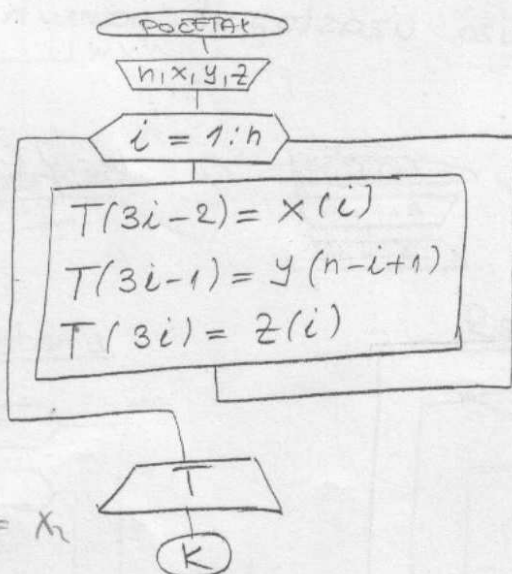 POČETAK
n, x, y, z
i = 1:n
T(3i-2) = x(i)
T(3i-1) = y(n-i+1)
T(3i) = z(i)
T
= x₂
K